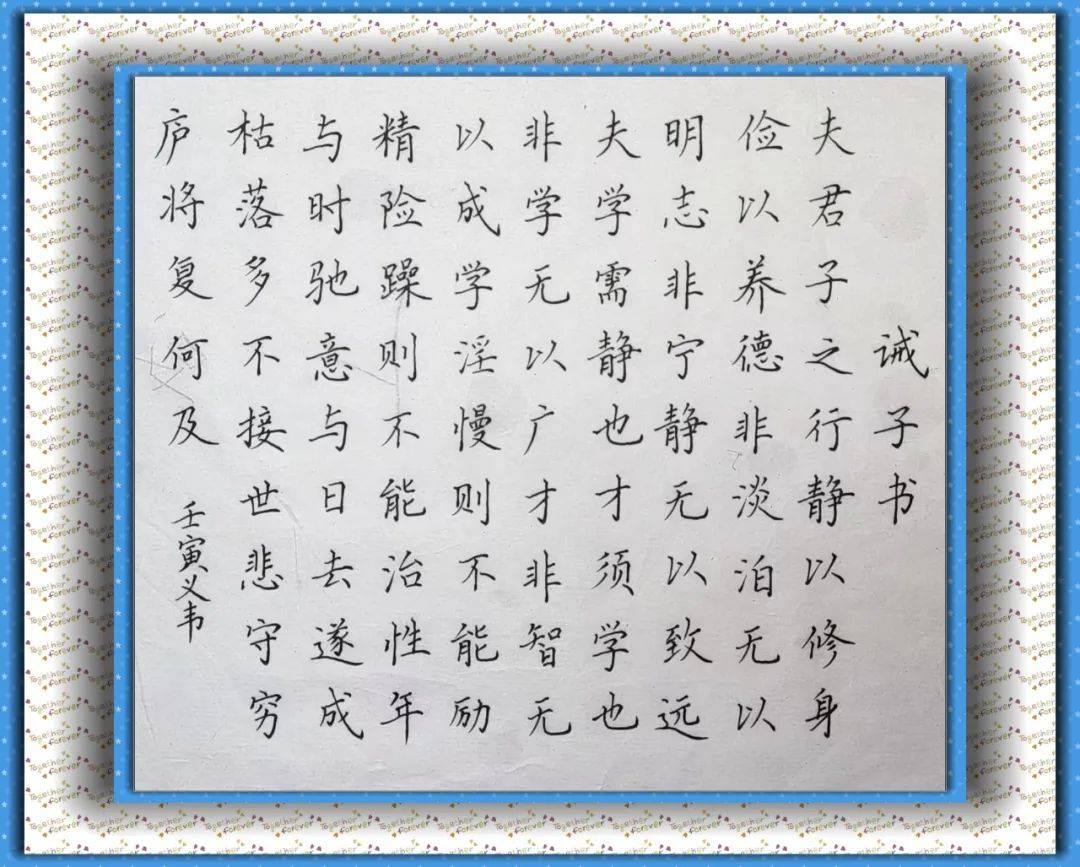 诫子书
夫君子之行静以修身
俭以养德非淡泊无以
明志非宁静无以致远
夫学需静也才须学也
非学无以广才非智无
以成学淫慢则不能励
精险躁则不能治性年
与时驰意与日去遂成
枯落多不接世悲守穷
庐将复何及
壬寅义韦
Together
forever